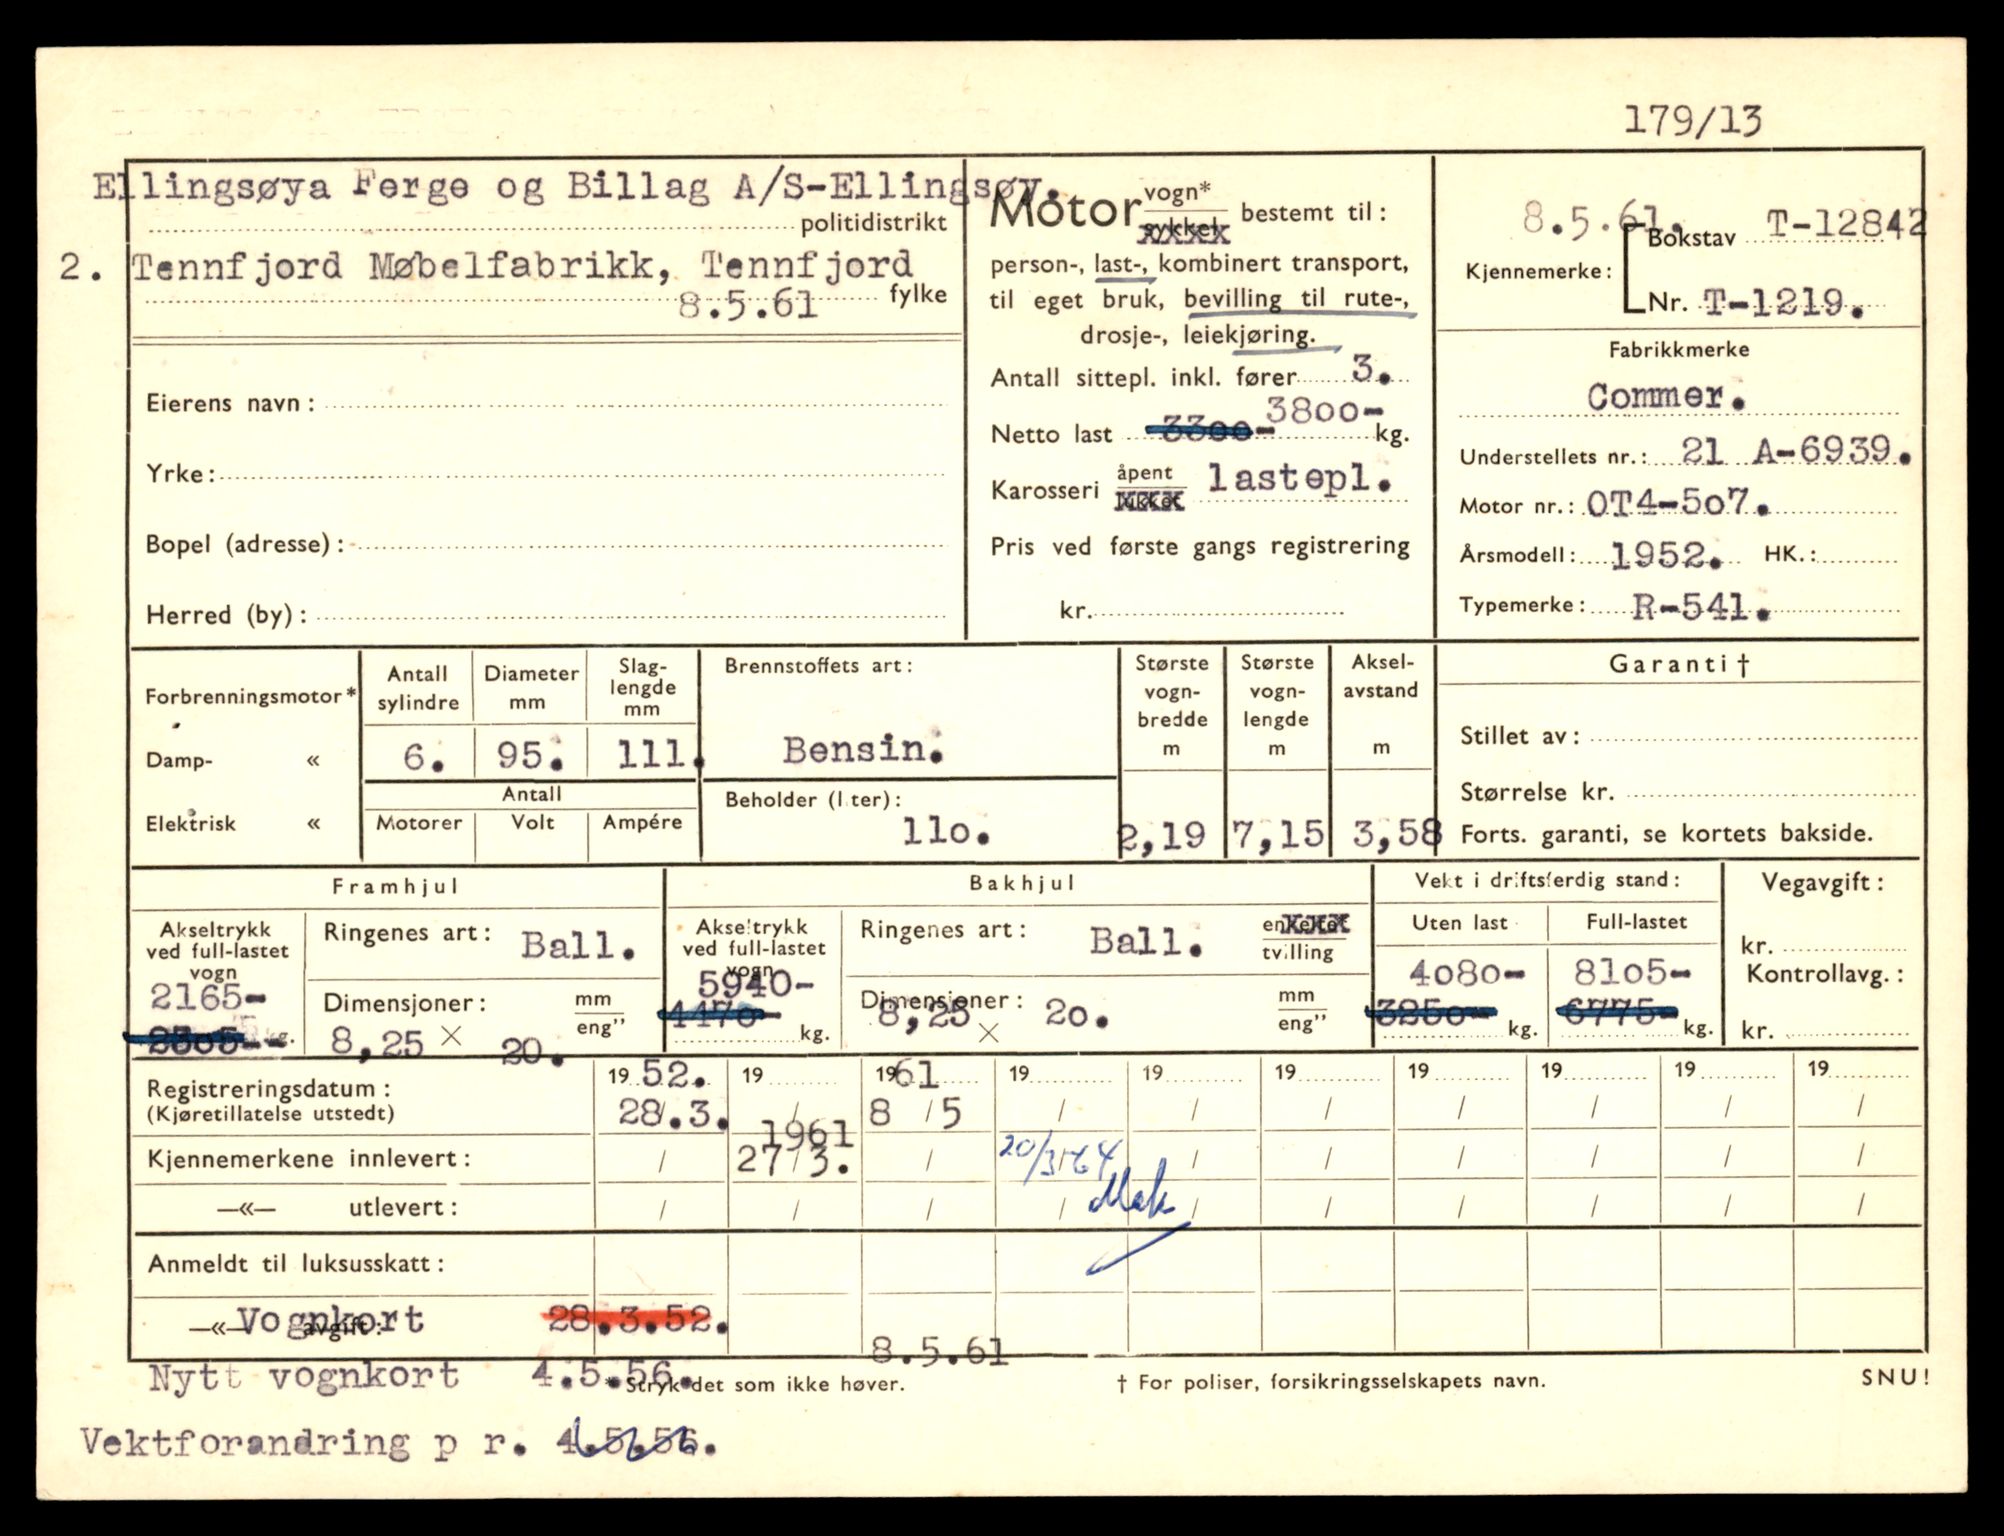 179/13
Ellingsøya Ferge og Billag A/S-Ellingsøy.
politidistrikt
2. Tennfjord Møbelfabrikk, Tennfjord
8.5.61 fylke
Eierens navn:
Yrke:
Bopel (adresse):
Herred (by):
Motor vogn* sykkel bestemt til:
person-, last-, kombinert transport,
til eget bruk, bevilling til rute-,
drosje-, leiekjøring.
Antall sittepl. inkl. fører 3.
Netto last 3300- 3800- kg.
Karosseri åpent lukket lastepl.
Pris ved første gangs registrering
kr.
8.5.61.
Kjennemerke: Bokstav T-12842
Nr. T-1219.
Fabrikkmerke
Commer.
Understellets nr.: 21 A-6939.
Motor nr.: OT4-507.
Årsmodell: 1952. HK.:
Typemerke: R-541.
Forbrenningsmotor*
Damp- «
Elektrisk «
Antall sylindre
6.
Diameter mm
95.
Slag-
lengde
mm
111.
Antall
Motorer Volt Ampére
Brennstoffets art:
Bensin.
Beholder (liter):
110.
Største
vogn-
bredde
m
2,19
Største
vogn-
lengde
m
7,15
Aksel-
avstand
m
3,58
Garanti †
Stillet av:
Størrelse kr.
Forts. garanti, se kortets bakside.
Framhjul
Akseltrykk
ved full-lastet
vogn
2165-
2305-- kg.
Ringenes art: Ball.
Dimensjoner: mm
eng”
8,25 × 20.
Bakhjul
Akseltrykk
ved full-lastet
vogn
5940-
4470- kg.
Ringenes art: Ball. enkelte
tvilling
Dimensjoner: mm
eng”
8,25 × 20.
Vekt i driftsferdig stand:
Uten last Full-lastet
4080- 8105-
3250- kg. 6775- kg.
Vegavgift:
kr.
Kontrollavg.:
kr.
Registreringsdatum: 1952. 19 1961 19 19 19 19 19 19 19
(Kjøretillatelse utstedt) 28/.3. / 8 / 5 / / / / / / /
1961
Kjennemerkene innlevert: / 27/3. / 20/3-64 / / / / / /
—«— utlevert: / / / / Mek / / / / / /
Anmeldt til luksusskatt:
—«— avgift: Vognkort 28.3.52.
8.5.61
Nytt vognkort 4.5.56.
* Stryk det som ikke høver.
† For poliser, forsikringsselskapets navn.
SNU!
Vektforandring p r. 4.5.56.